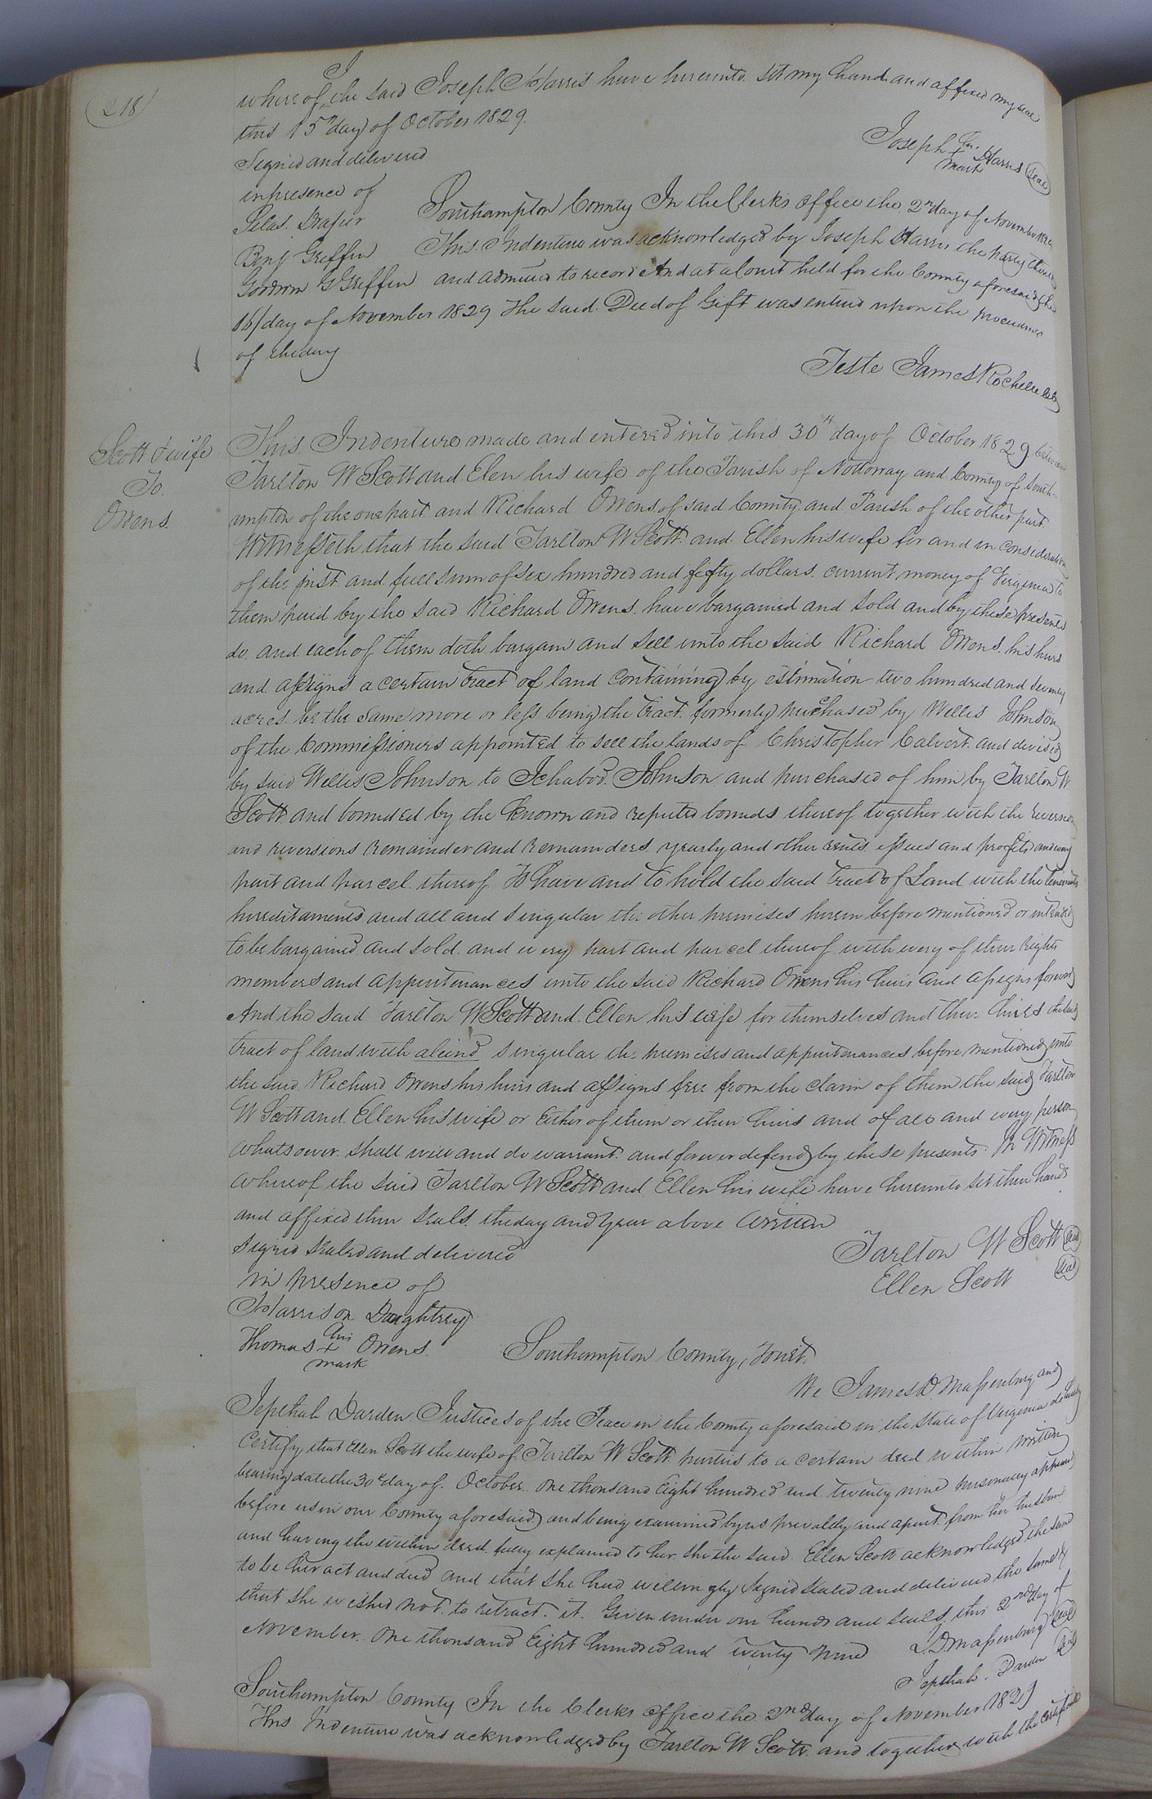 (218)
I
whereof the said Joseph Harris have hereunto set my hand and affixed my seal
this 15th day of October 1829.
Signed and delivered
Joseph his Harris (Seal)
mark
in presence of
Silas Brasier
Southampton County In the Clerks Office the 2nd day of November 1829
Benj Griffin
This Indenture was acknowledged by Joseph Harris the party thereto
Goodwin G Griffin and admitted to record And at a Court held for the County aforesaid the
16 day of November 1829 The said Deed of Gift was entered upon the proceedings
of the day
Teste James Rochelle Clk
Scott & wife
To
Owens
This Indenture made and entered into this 30th day of October 1829 between
Tarlton W Scott and Elen his wife of the Parish of Nottoway and County of South-
ampton of the one part and Richard Owens of said County and Parish of the other part
Witnesseth that the said Tarlton W Scott and Ellen his wife for and in consideration
of the just and full sum of six hundred and fifty dollars current money of Virginia to
them paid by the said Richard Owens have bargained and sold and by these presents
do and each of them doth bargain and sell unto the said Richard Owens his heirs
and assigns a certain tract of land containing by estimation two hundred and seventy
acres be the same more or less being the tract formerly purchased by Willis Johnson
of the Commissioners appointed to sell the lands of Christopher Calvert and devised
by said Willis Johnson to Ichabod Johnson and purchased of him by Tarlton W
Scott and bounded by the known and reputed bounds thereof together with the reversion
and reversions remainder and remainders yearly and other rents issues and profits and every
part and parcel thereof To have and to hold the said tract of Land with the tenements
hereditaments and all and singular the other premises herein before mentioned or intended
to be bargained and sold and every part and parcel thereof with every of their rights
members and appurtenances unto the said Richard Owens his heirs and assigns forever
And the said Tarlton W Scott and Ellen his wife for themselves and their heirs the said
tract of land with all and singular the premises and appurtenances before mentioned unto
the said Richard Owens his heirs and assigns free from the claim of them the said Tarlton
W Scott and Ellen his wife or either of them or their heirs and of all and every person
whatsoever shall will and do warrant and forever defend by these presents In Witness
whereof the said Tarlton W Scott and Ellen his wife have hereunto set their hands
and affixed their seals the day and year above written
Signed sealed and delivered
Tarlton W Scott (Seal)
in presence of
Ellen Scott (Seal)
Harrison Daughtrey
Thomas his Owens
mark
Southampton County, Towit.
We James D Massenburg and
Jepthah Darden Justices of the Peace in the County aforesaid in the State of Virginia do hereby
Certify that Ellen Scott the wife of Tarlton W Scott parties to a certain deed within written
bearing date the 30th day of October one thousand Eight hundred and twenty nine personally appeared
before us in our County aforesaid and being examined by us privately and apart from her husband
and having the within deed fully explained to her she the said Ellen Scott acknowledged the same
to be her act and deed and that she had willingly signed sealed and delivered the same &
that she wished not to retract it. Given under our hands and seals, this 2nd day of
November one thousand Eight hundred and twenty nine
J D Massenburg (Seal)
Jepthah Darden (Seal)
Southampton County In the Clerks Office the 2nd day of November 1829
This Indenture was acknowledged by Tarlton W Scott and together with the certificate